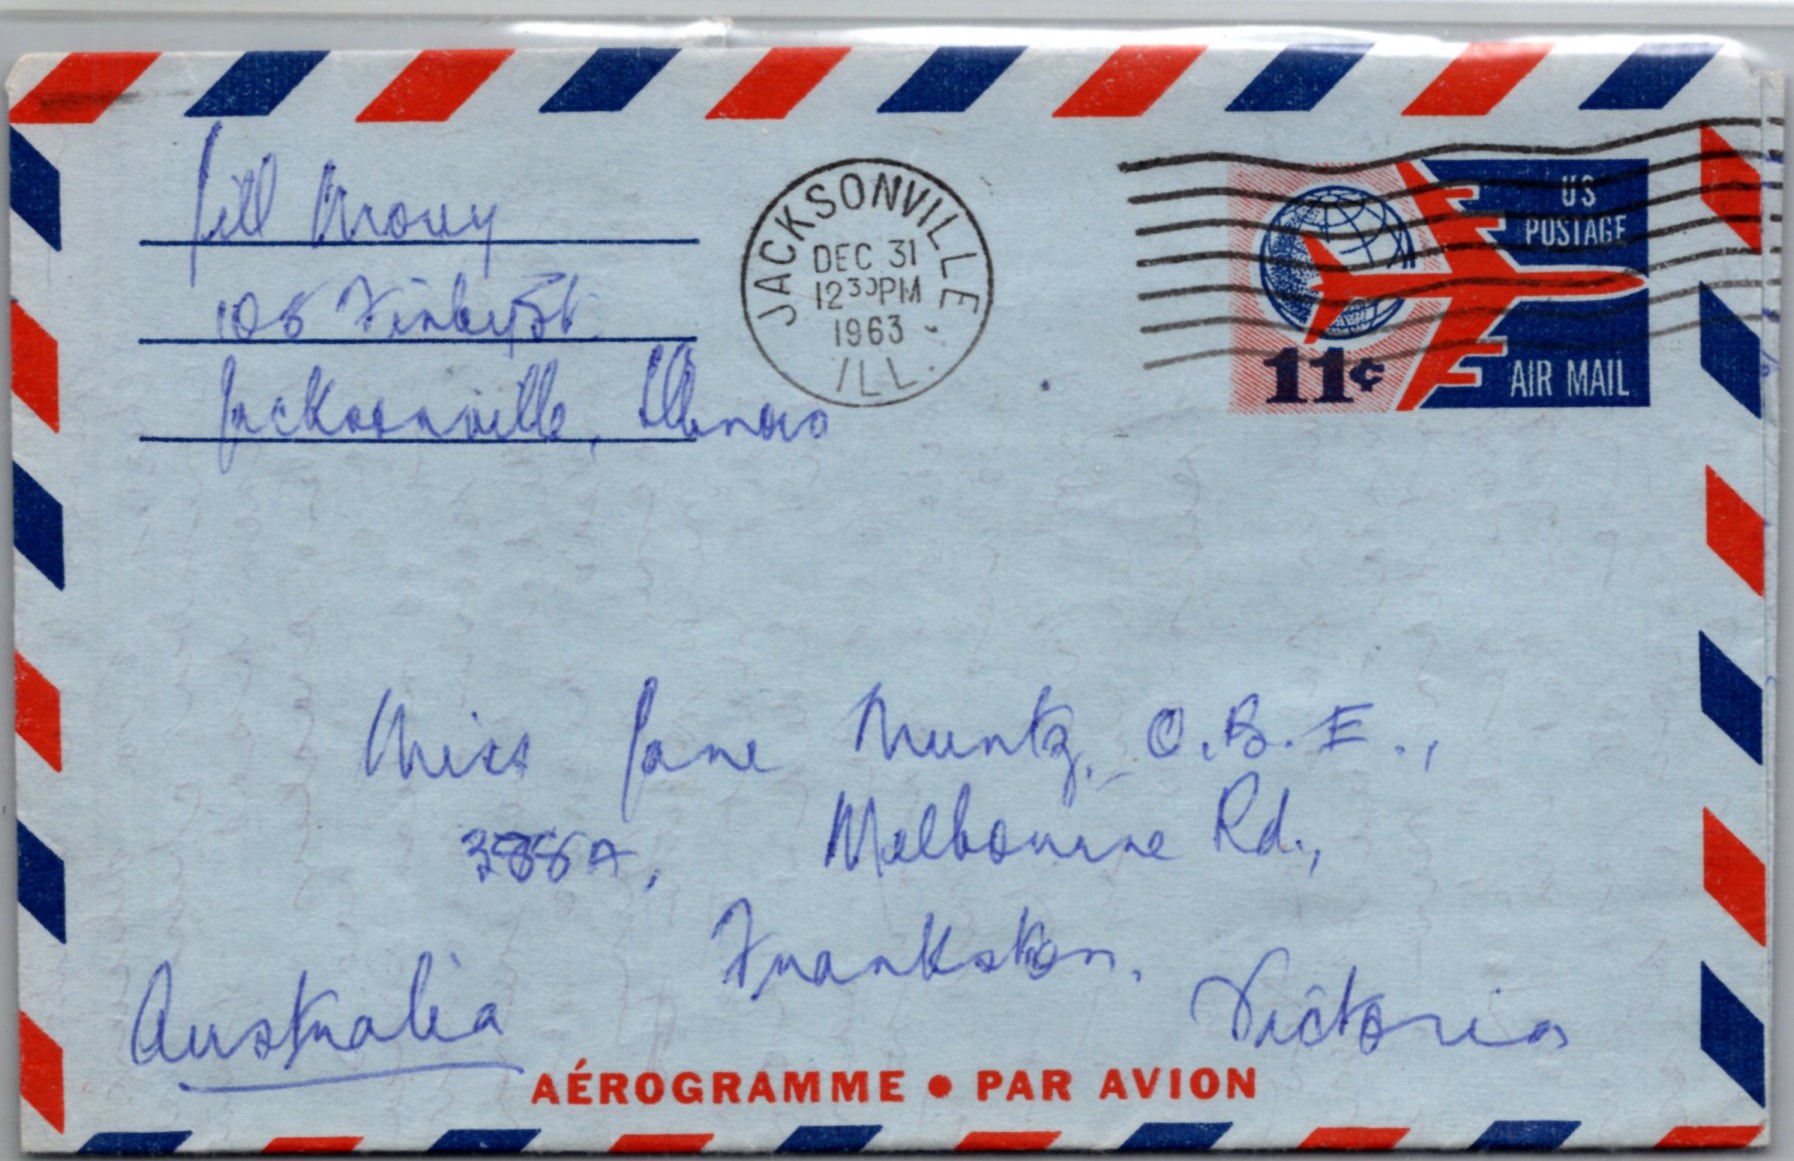 Jill
JACKSONVILLE
DEC 31
12 30 PM
1963
ILL.
US
POSTAGE
11¢
AIR MAIL
Jacksonville, Illinois
Miss Jane Muntz, O.B.E.,
388A, Melbourne Rd.,
Frankston,
Victoria
Australia
AÉROGRAMME • PAR AVION